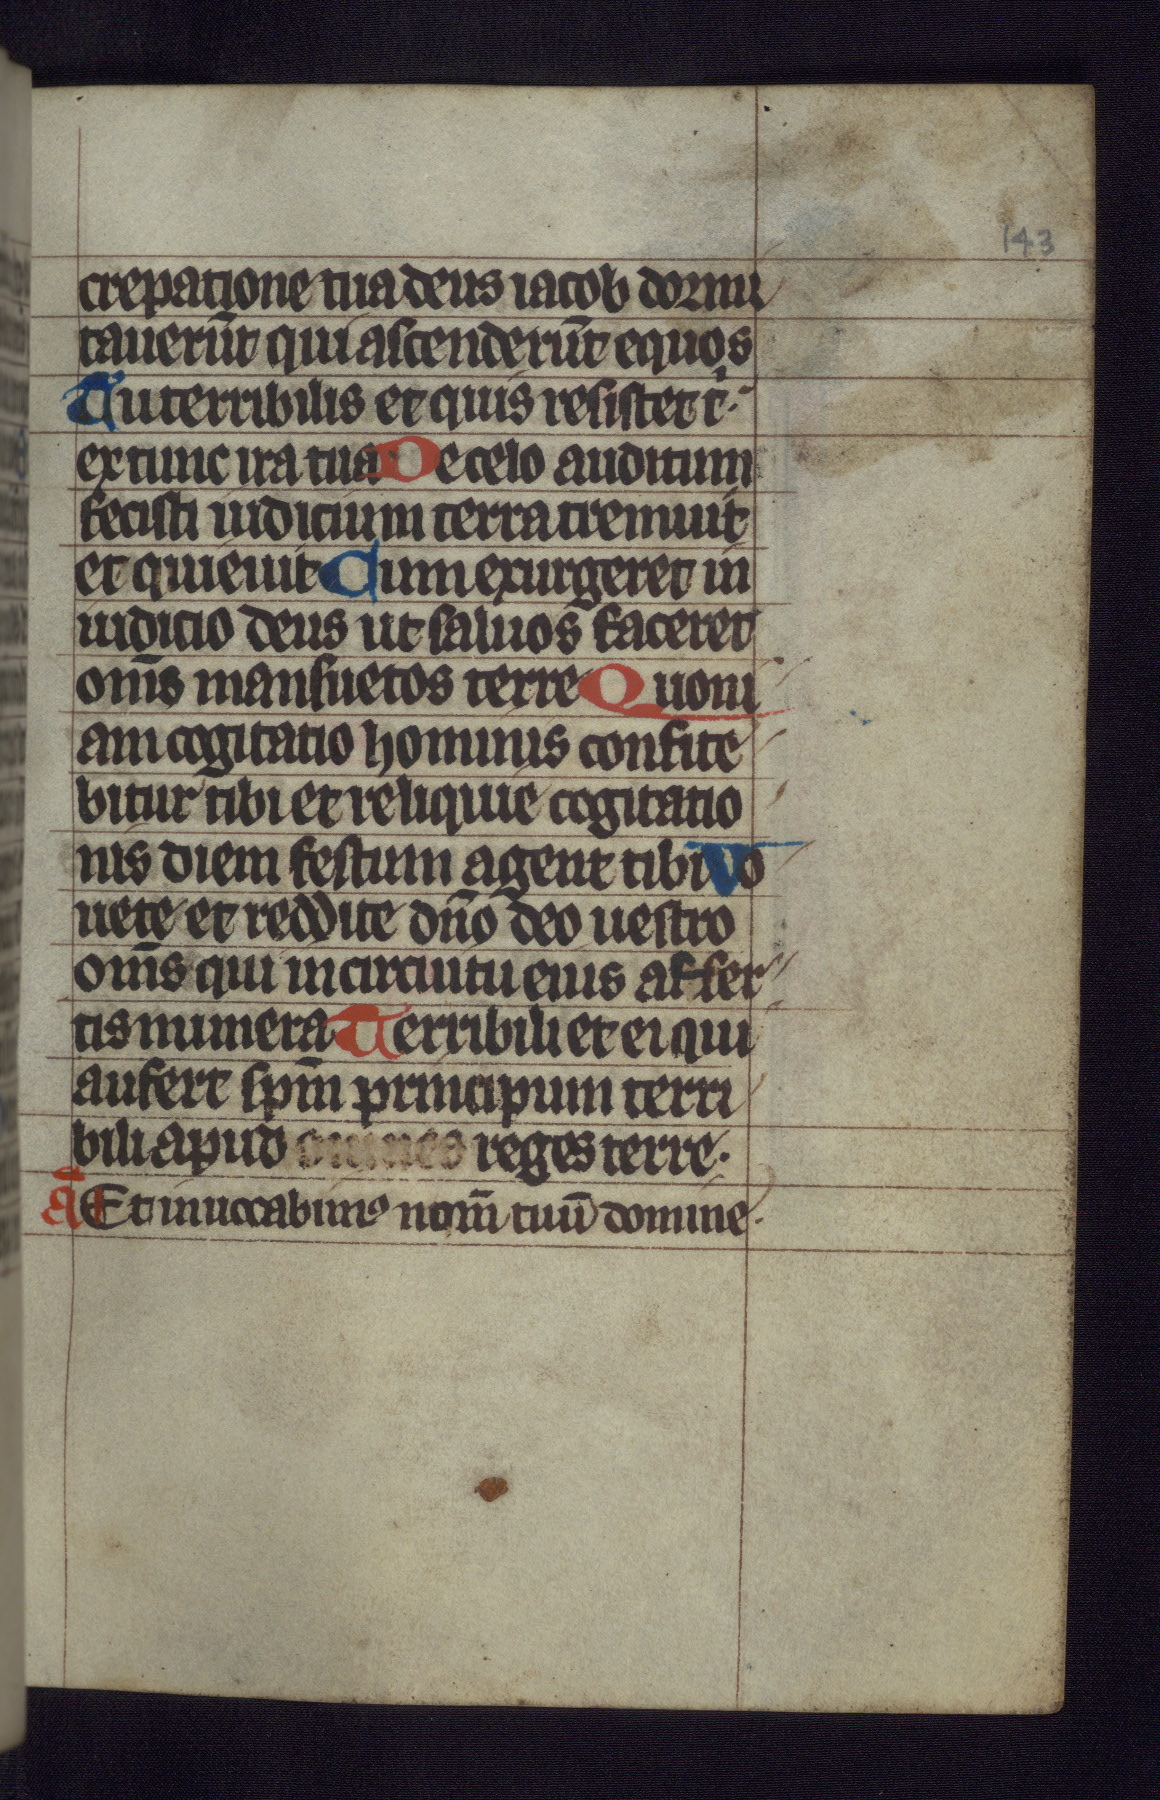 143
crepatione tua deus iacob dormi
tauerūt qui ascenderūt equos
Tu terribilis et quis resistet t̄
ex tunc ira tua De celo auditum
fecisti iudicium terra tremuit
et quieuit Cum exurgeret in
iudicio deus ut saluos faceret
om̄s mansuetos terre Quoni
am cogitatio hominis confite
bitur tibi et reliquie cogitatio
nis diem festum agent tibi Vo
uete et reddite dn̄o deo uestro
om̄s qui in circuitu eius affer
tis munera Terribili et ei qui
aufert sp̄m principum terri
bili apud omnes reges terre.
ā Et inuocabimꝰ nom̄ tuū domine.